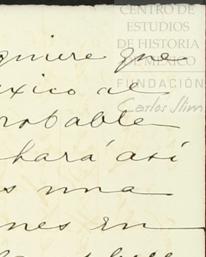 CENTRO DE
ESTUDIOS
DE HISTORIA
DE MÉXICO
FUNDACIÓN
Carlos Slim
quiere que
éxico de
robable
hará así
s una
ones en